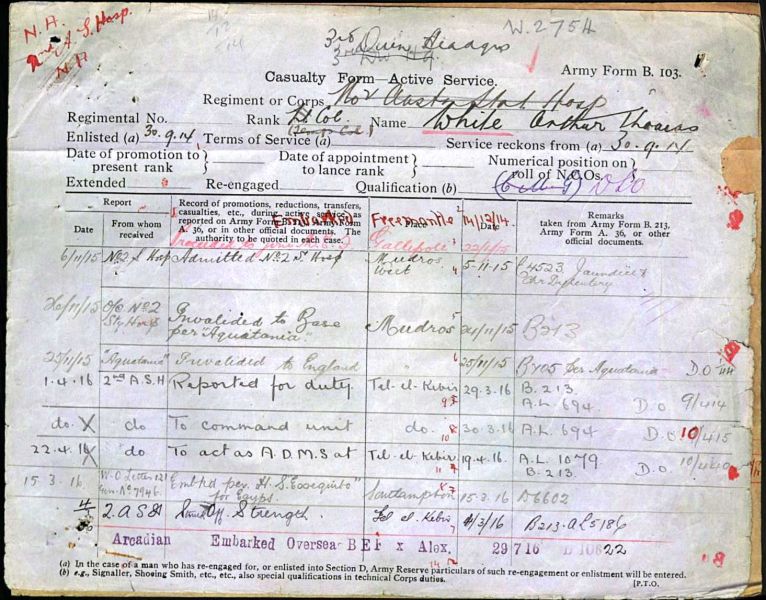 N.H.
2nd A.S. Hosp.
N.H
W.2754
3rd Divn Headqrs
Casualty Form Active Service.
Army Form B. 103.
Regiment or Corps No 2 Austn Stat Hosp
Regimental No. Rank Lt Col. Name White Arthur Thomas
(Temp. Col.)
Enlisted (a) 30.9.14 Terms of Service (a) Service reckons from (a) 30.9.14
Date of promotion to present rank
Date of appointment to lance rank
Numerical position on roll of N.C.Os.
Extended Re-engaged Qualification (b) DSO
Report
Date
From whom received
Record of promotions, reductions, transfers, casualties, etc., during active service, as reported on Army Form B. 213, Army Form A. 36, or in other official documents. The authority to be quoted in each case.
Place
Date
Remarks
taken from Army Form B. 213, Army Form A. 36, or other official documents.
Embarked Freemantle 14/12/14
Proceeded to join M.E.F. Gallipoli
6/11/15 No2 S Hosp Admitted No2 S Hosp Mudros West 5-11-15 Jaundice &
26/11/15 O/C No2 Sty Hosp Invalided to Base per "Aquatania" Mudros 21/11/15 B213
25/11/15 "Aquatania" Invalided to England " 25/11/15 per Aquatania D.O
1.4.16 2nd A.S.H Reported for duty Tel-el-Kebir 29.3.16 B.213. A.L. 694. D.O 9/414
do. do To command unit do. 30.3.16 A.L. 694 D.O 10/415
22.4.16 do To act as A.D.M.S at Tel-el-Kebir 19.4.16 A.L. 1079 B-213 D.O. 10/440
15.3.16. W.O Letter 121 Gen. No 7946. Embkd per. H.S. "Essequibo" for Egypt. Southampton 15.3.16 D6602
2.A S H Struck Off Strength. Tel el. Kebir /3/16 B213. AL5186
Arcadian Embarked Overseas BEF x Alex. 29 7 16
(a) In the case of a man who has re-engaged for, or enlisted into Section D, Army Reserve particulars of such re-engagement or enlistment will be entered.
(b) e.g., Signaller, Shoeing Smith, etc., etc., also special qualifications in technical Corps duties. [P.T.O.